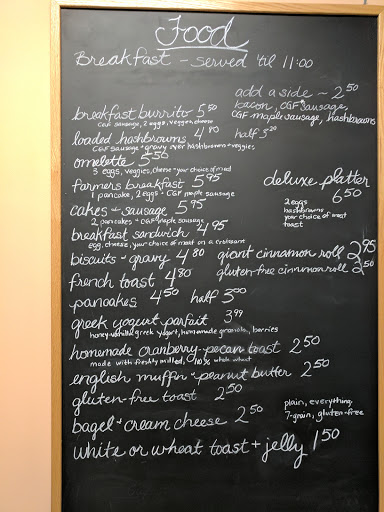 Food
Breakfast - served 'til 11:00
add a side ~ 2.50
bacon, CGF sausage,
CGF maple sausage, hashbrowns
breakfast burrito 5.50
CGF sausage, 2 eggs, veggies, cheese
loaded hashbrowns 4.80 half 3.20
CGF sausage + gravy over hashbrowns + veggies
omelette 5.50
3 eggs, veggies, cheese + your choice of meat
farmers breakfast 5.95
1 pancake, 2 eggs + CGF maple sausage
deluxe platter
6.50
2 eggs
hashbrowns
your choice of meat
toast
cakes + sausage 5.95
2 pancakes + CGF maple sausage
breakfast sandwich 4.95
egg, cheese, your choice of meat on a croissant
biscuits + gravy 4.80
giant cinnamon roll 2.95
gluten-free cinnamon roll 2.50
french toast 4.80
pancakes 4.50 half 3.00
greek yogurt parfait 3.99
honey-vanilla greek yogurt, homemade granola, berries
homemade cranberry-pecan toast 2.50
made with freshly milled, 100% whole wheat
english muffin + peanut butter 2.50
gluten-free toast 2.50
bagel + cream cheese 2.50
plain, everything,
7-grain, gluten-free
white or wheat toast + jelly 1.50